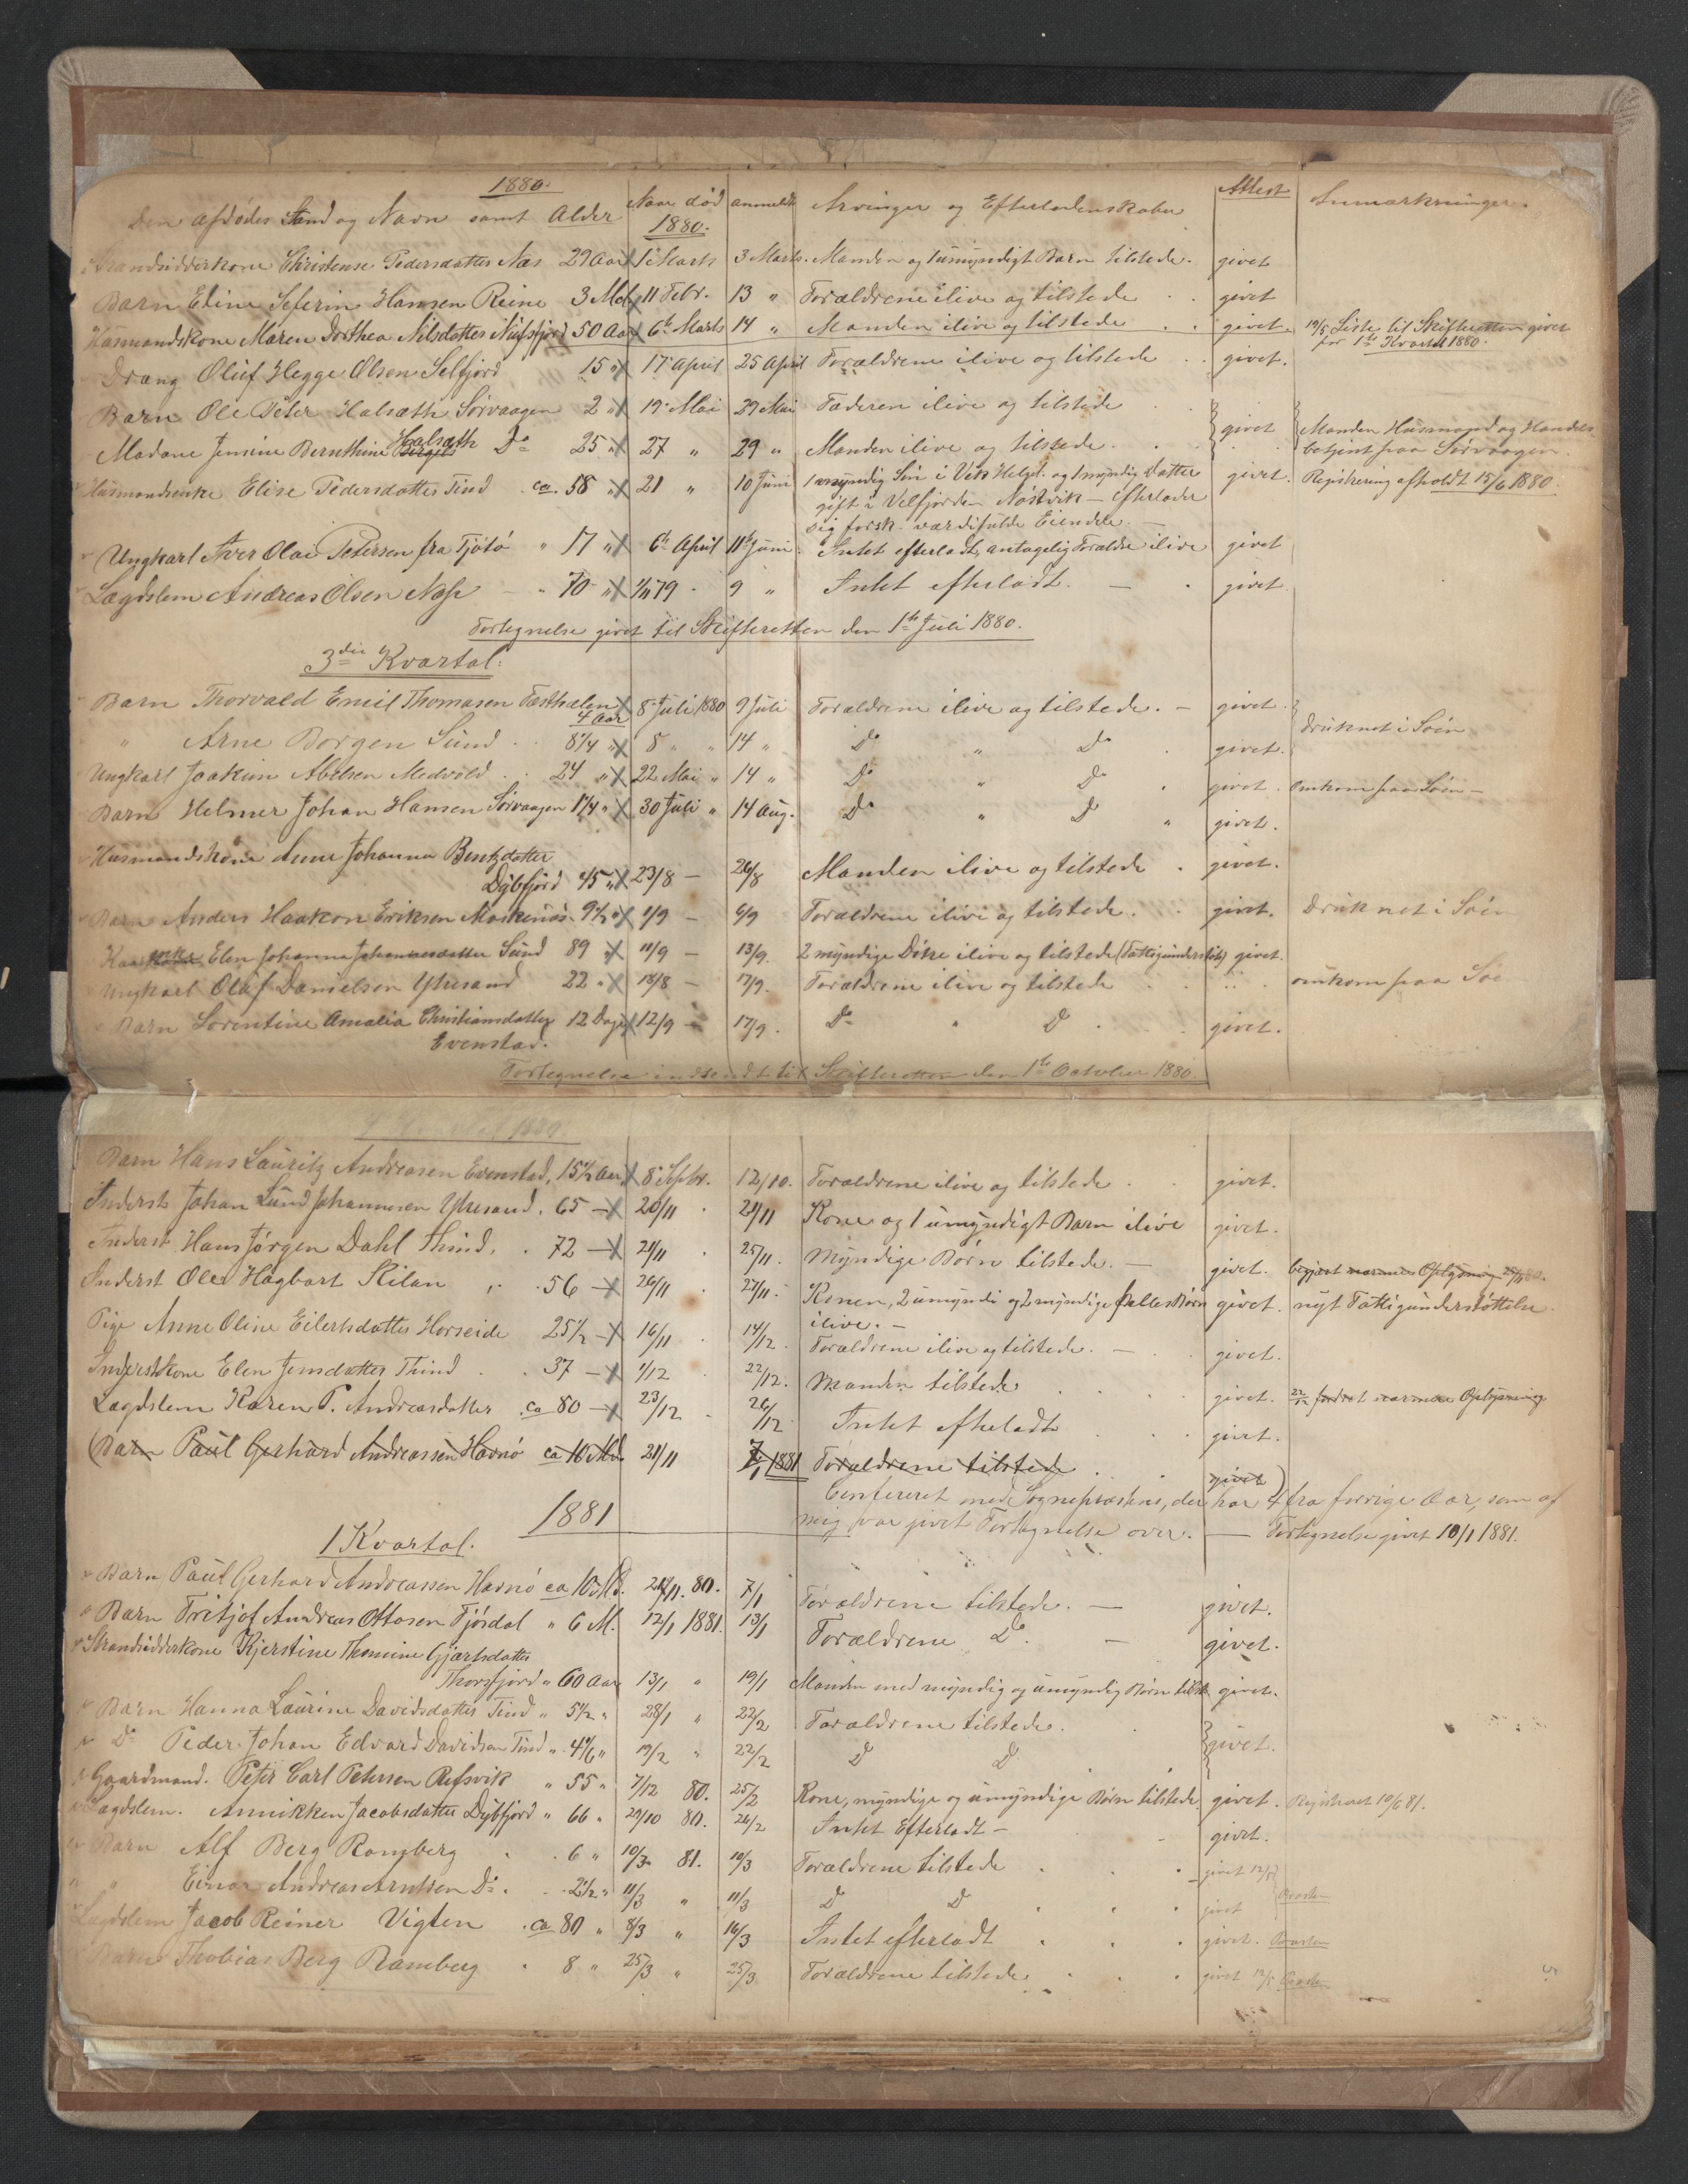 1880.
Den afdødes Stand og Navn samt Alder Naar død 1880. anmeldt Arvinger og Efterladenskaber Attest Anmærkninger.
Strandsidderkone Christense Pedersdatter Næs 29 Aar 1 Marts 3 Marts. Manden og 1 umyndigt Barn tilstede. givet
Barn Eline Seferin Hansen Reine 3 Md 11 Febr. 13 " Forældrene ilive og tilstede . . givet
Husmandskone Maren Dorthea Nilsdatter Nusfjord 50 Aar 6te Marts 14 " Manden ilive og tilstede . . givet. 19/5 Liste til Skifteretten givet
for 1ste Kvartal 1880.
Dræng Oluf Hegge Olsen Selfjord 15 " 17 April 25 April Forældrene ilive og tilstede . . givet.
Barn Ole Peter Halsæth Sørvaagen 2 " 19 Mai 29 Mai Faderen ilive og tilstede . givet Manden Husmand og Handels
Madame Jensine Bernthine Halsæth Do 25 " 27 " 29 " Manden ilive og tilstede . . betjent paa Sørvaagen.
Husmandsenke Elise Pedersdatter Tind ca. 58 " 21 " 10 Juni 1 myndig Søn i Vik Helgl. og 1 myndig Datter givet. Registrering afholdt 15/6 1880.
gift i Velfjorden Nostvik - Efterlader
sig forsk. værdifulde Eiendele. -
Ungkarl Iver Olai Petersen fra Tjøtø " 17 " 6te April 11te Juni. Intet efterladt, antagelig Forældre ilive givet
Lægdslem Andreas Olsen Næss - " 70 " 1/11 79 . 9 " Intet efterladt. - . givet.
Fortegnelse givet til Skifteretten den 1ste Juli 1880.
3die Kvartal.
Barn Thorvald Emil Thomasen Festhælen 8 Juli 1880 9 Juli Forældrene ilive og tilstede. - givet.
4 Aar
" Arne Borgen Sund . . 8 1/4 " 8 " " 14 " Do " Do . givet. druknet i Søen
Ungkarl Joakim Abelsen Medvold . . 24 " 22 Mai " 14 " Do " Do . givet. omkom paa Søen -
Barn Helmer Johan Hansen Sørvaagen 1 1/4 " 30 Juli " 14 Aug. Do " Do " givet.
Husmandskone Anne Johanna Bentzdatter
Dybfjord 45 " 23/8 - 26/8 Manden ilive og tilstede . givet.
Barn Anders Haakon Eriksen Moskenæs 9 1/2 " 1/9 - 6/9 Forældrene ilive og tilstede . . givet. Druknet i Søen
Elen Johanna Johannesdatter Sund 89 " 11/9 - 13/9. 2 myndige Døtre ilive og tilstede (Fattigunderstøt) givet.
Ungkarl Oluf Danielsen Ytresand 22 " 18/8 - 17/9. Forældrene ilive og tilstede . . " . omkom paa Søe
Barn Sorentine Amalia Christiansdatter 12 Dage 12/9 - 17/9. Do " Do . . givet.
Evenstad.
Fortegnelse indsendt til Skifteretten den 1ste October 1880.
Barn Hans Lauritz Andreasen Evenstad, 15 1/2 Aar 8 Septbr. 12/10. Forældrene ilive og tilstede . . givet.
Inderst Johan Lund Johannesen Ytresand. 65 - 20/11 . 21/11 Kone og 1 umyndigt Barn ilive givet.
Inderst Hans Jørgen Dahl Thind. . 72 - 21/11 . 25/11. Myndige Børn tilstede. - givet. begjært nærmere Oplysning
Inderst Ole Hagbart Skilan , . 56 - 26/11 27/11. Konen, 2 umyndi og 2 myndige fælles Børn givet. nyt Fattigunderstøttelse.
ilive. -
Pige Anne Oline Eilertsdatter Horseide 25 1/2 - 16/11 . 14/12. Forældrene ilive og tilstede. - . givet.
Inderstkone Elen Jensdatter Thind . . 37 - 1/12 . 22/12. Manden tilstede . . . . givet. 22/12 fordret nærmere Oplysning
Lægdslem Karen P. Andreasdatter ca 80 - 23/12 . 26/12 Intet efterladt . . . givet.
(Barn Paul Gerhard Andreassen Havnø ca 10 Md. 21/11 7/1 1881 Forældrene tilstede . . givet)
Confereret med Sognepræsten, der har 4 fra forrige Aar, som af
mig var givet Fortegnelse over. - Fortegnelse givet 10/1 1881.
1881
1 Kvartal.
Barn Paul Gerhard Andreassen Havnø ca 10 Md. 21/11. 80. 7/1 Forældrene tilstede. - givet.
Barn Fritjof Andreas Ottosen Fjørdal " 6 M. 12/1 1881. 13/1 Forældrene Do. - givet.
Strandsidderkone Kjerstine Thomine Gjærtsdatter
Thorsfjord " 60 Aar 13/1 " 19/1 Manden med myndig og umyndig Børn tilst. givet.
Barn Hanna Laurine Davidsdatter Tind " 5 1/2 " 28/1 " 22/2 Forældrene tilstede. . givet.
Do Peder Johan Edvard Davidsen Tind " 4 1/6 " 19/2 " 22/2 Do Do
Gaardmand. Peter Carl Petersen Refsvik " 55 " 7/12 80. 25/2 Kone, myndige og umyndige Børn tilstede. givet. Registreret 10/6 81.
Lægdslem. Annikken Jacobsdatter Dybfjord " 66 " 29/10 80. 26/2 Intet Efterladt - - givet.
Barn Alf Berg Ramberg . . 6 " 10/3 81. 10/3 Forældrene tilstede . . . givet 12/5
" " Einar Andreas Arntsen Do . . 2 1/2 " 11/3 " 11/3 Do Do . . . givet Præsten
Lægdslem Jacob Reiner Vigten . ca 80 " 8/3 " 16/3 Intet efterladt . . . givet. Præsten
Barn Thobias Berg Ramberg . 8 " 25/3 " 25/3 Forældrene tilstede. . . givet 12/5 Præsten